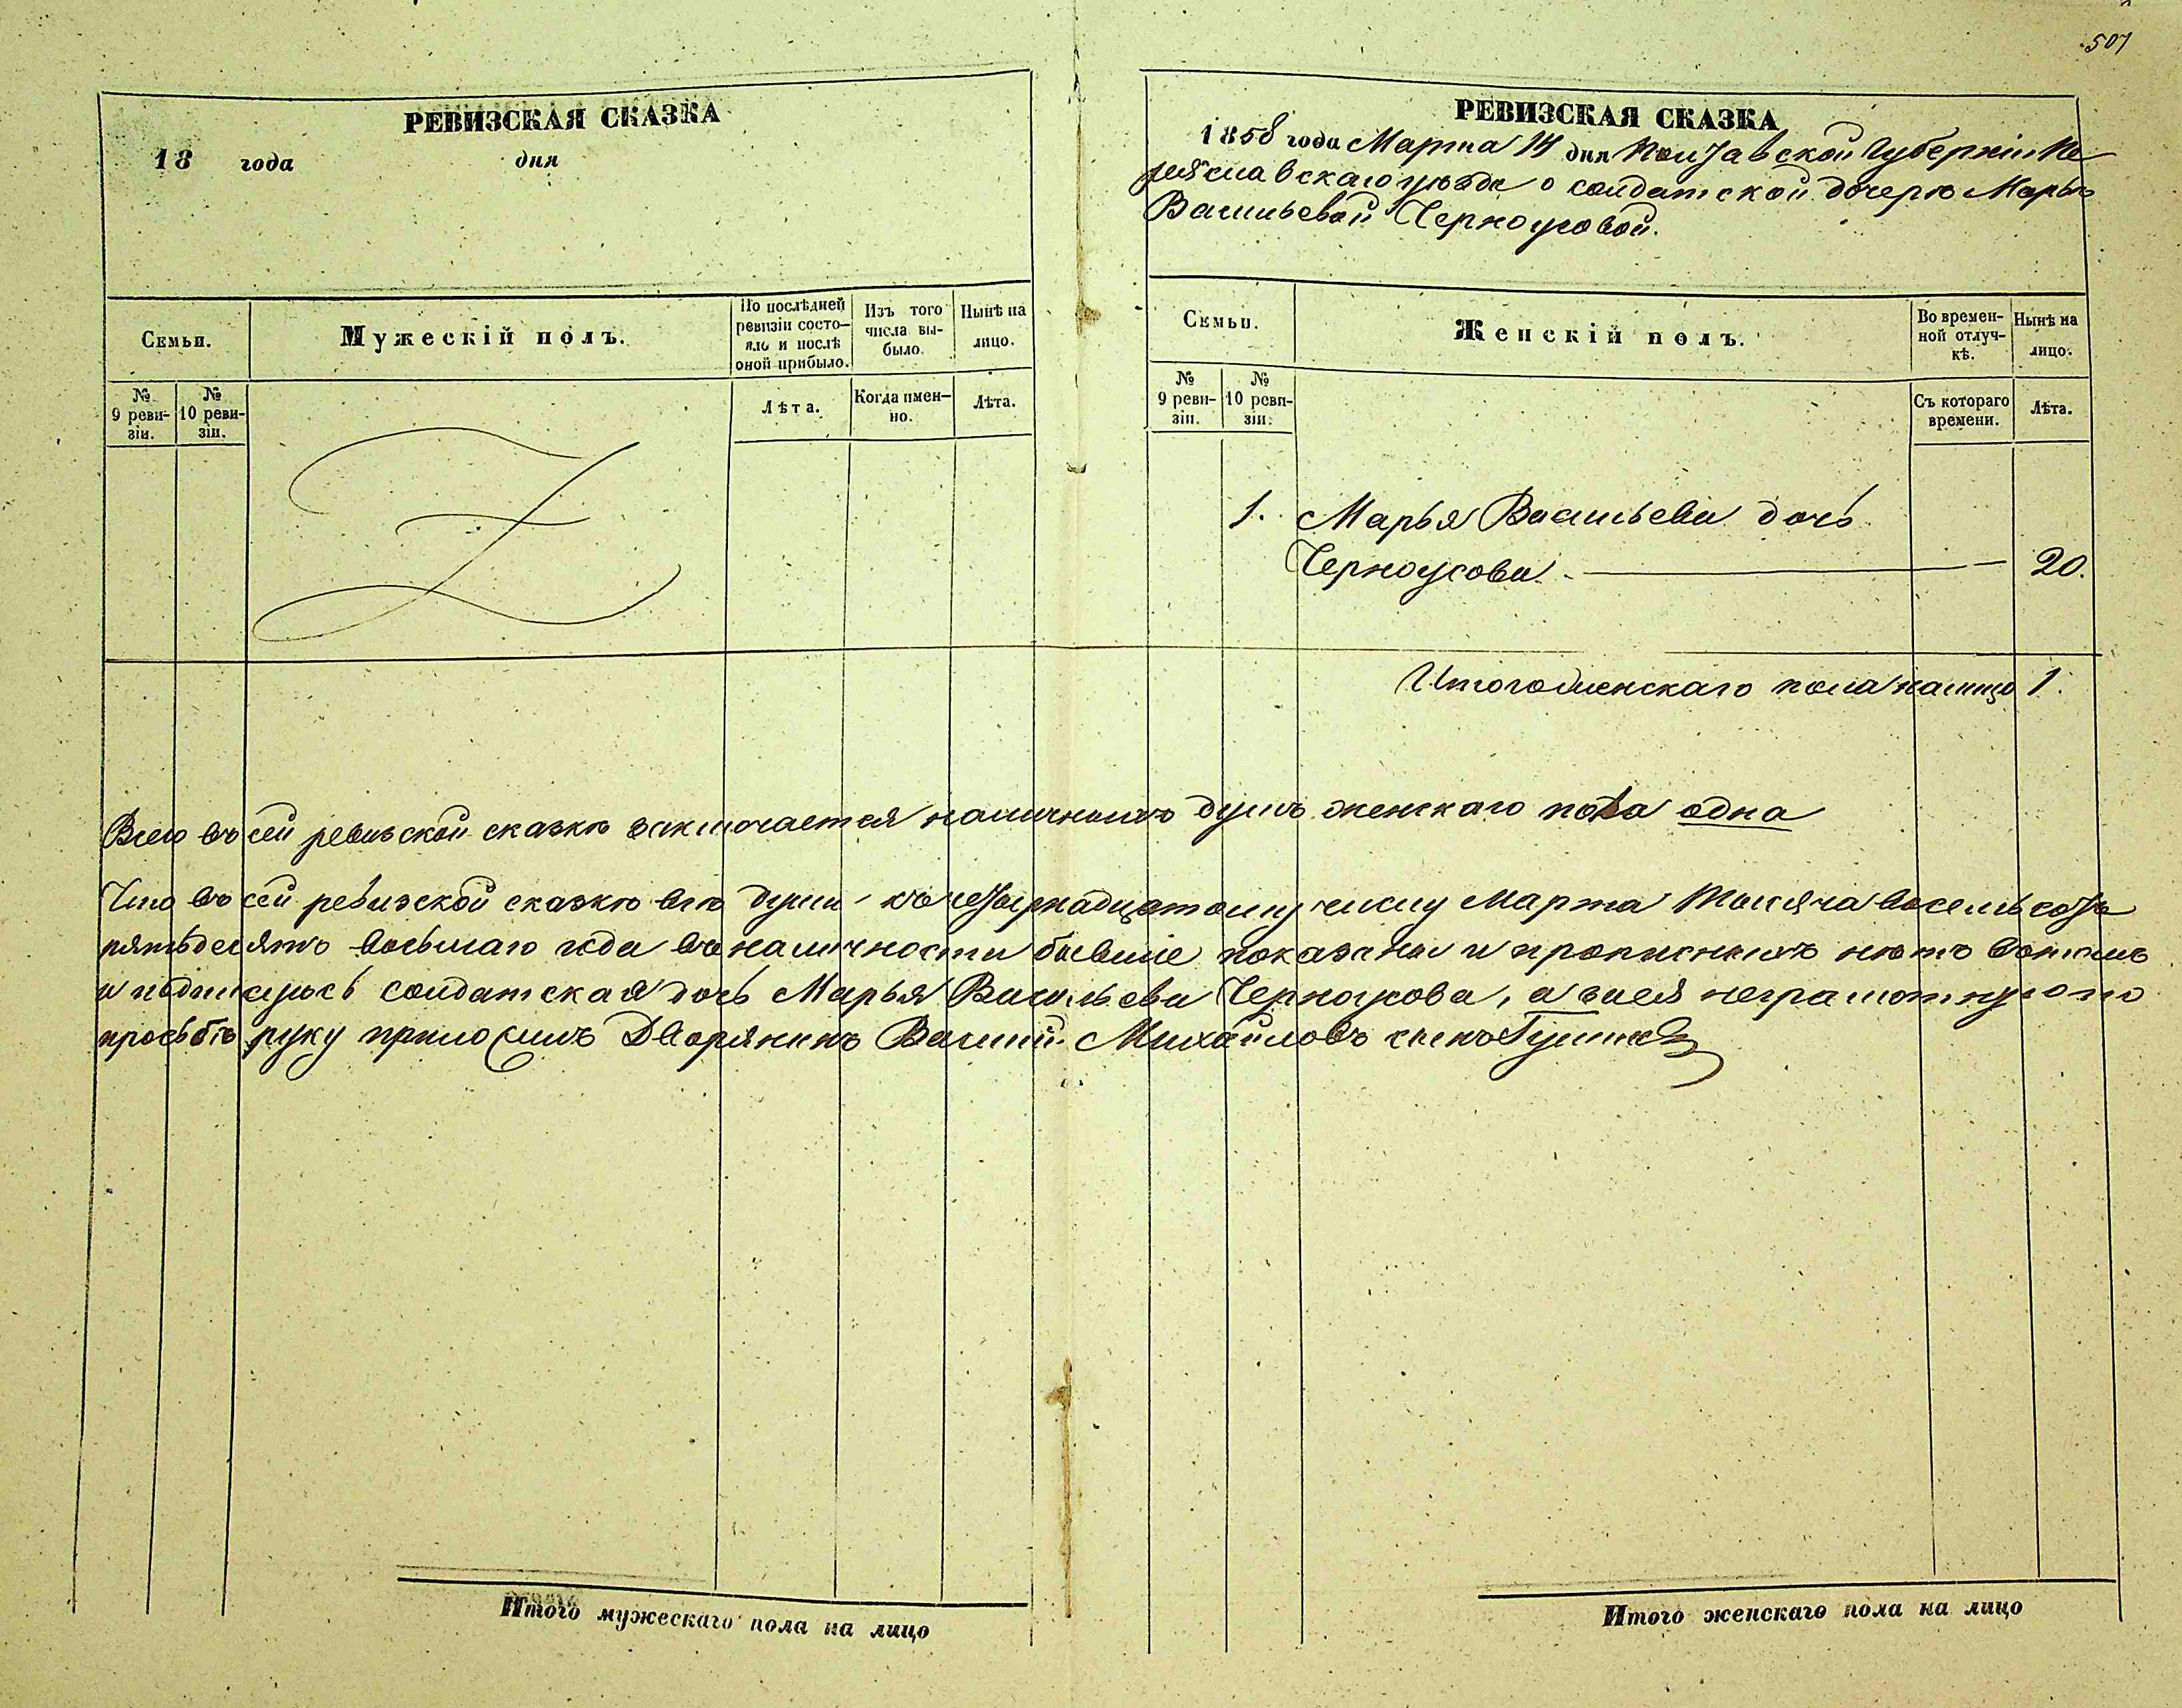 507
РЕВИЗСКАЯ СКАЗКА
18 года дня
Семьи.
Мужескій полъ.
По послѣдней ревизіи состояло и послѣ оной прибыло.
Изъ того числа выбыло.
Нынѣ на лицо.
№ 9 ревизіи.
№ 10 ревизіи.
Лѣта.
Когда именно.
Лѣта.
РЕВИЗСКАЯ СКАЗКА
1858 года Марта 14 дня Полтавской Губерніи Пе
реяславскаго уѣзда о солдатской дочерѣ Марьѣ
Васильевой Черноусовой.
Семьи.
Женскій полъ.
Во временной отлучкѣ.
Нынѣ на лицо.
№ 9 ревизіи.
№ 10 ревизіи.
Съ котораго времени.
Лѣта.
1. Марья Васильева дочь
Черноусова 20.
Итого женскаго пола налицо 1.
Всего въ сей ревизской сказкѣ заключается наличныхъ душъ женскаго пола одна
Что въ сей ревизской сказкѣ всѣ души къ четырнадцатому числу Марта тысяча восемьсотъ
пятьдесятъ восьмаго года въ наличности бывшіе показаны и прописныхъ нѣтъ вотомъ
и подпишусь солдатская дочь Марья Васильева Черноусова, а за нея неграмотную по
просьбѣ руку приложилъ Дворянинъ Василий Михайловъ сынъ
Итого мужескаго пола на лицо
Итого женскаго пола на лицо